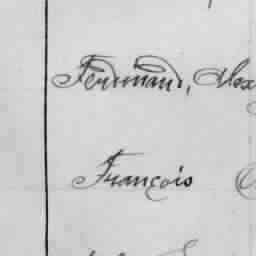 Ferdinand, Alex
François